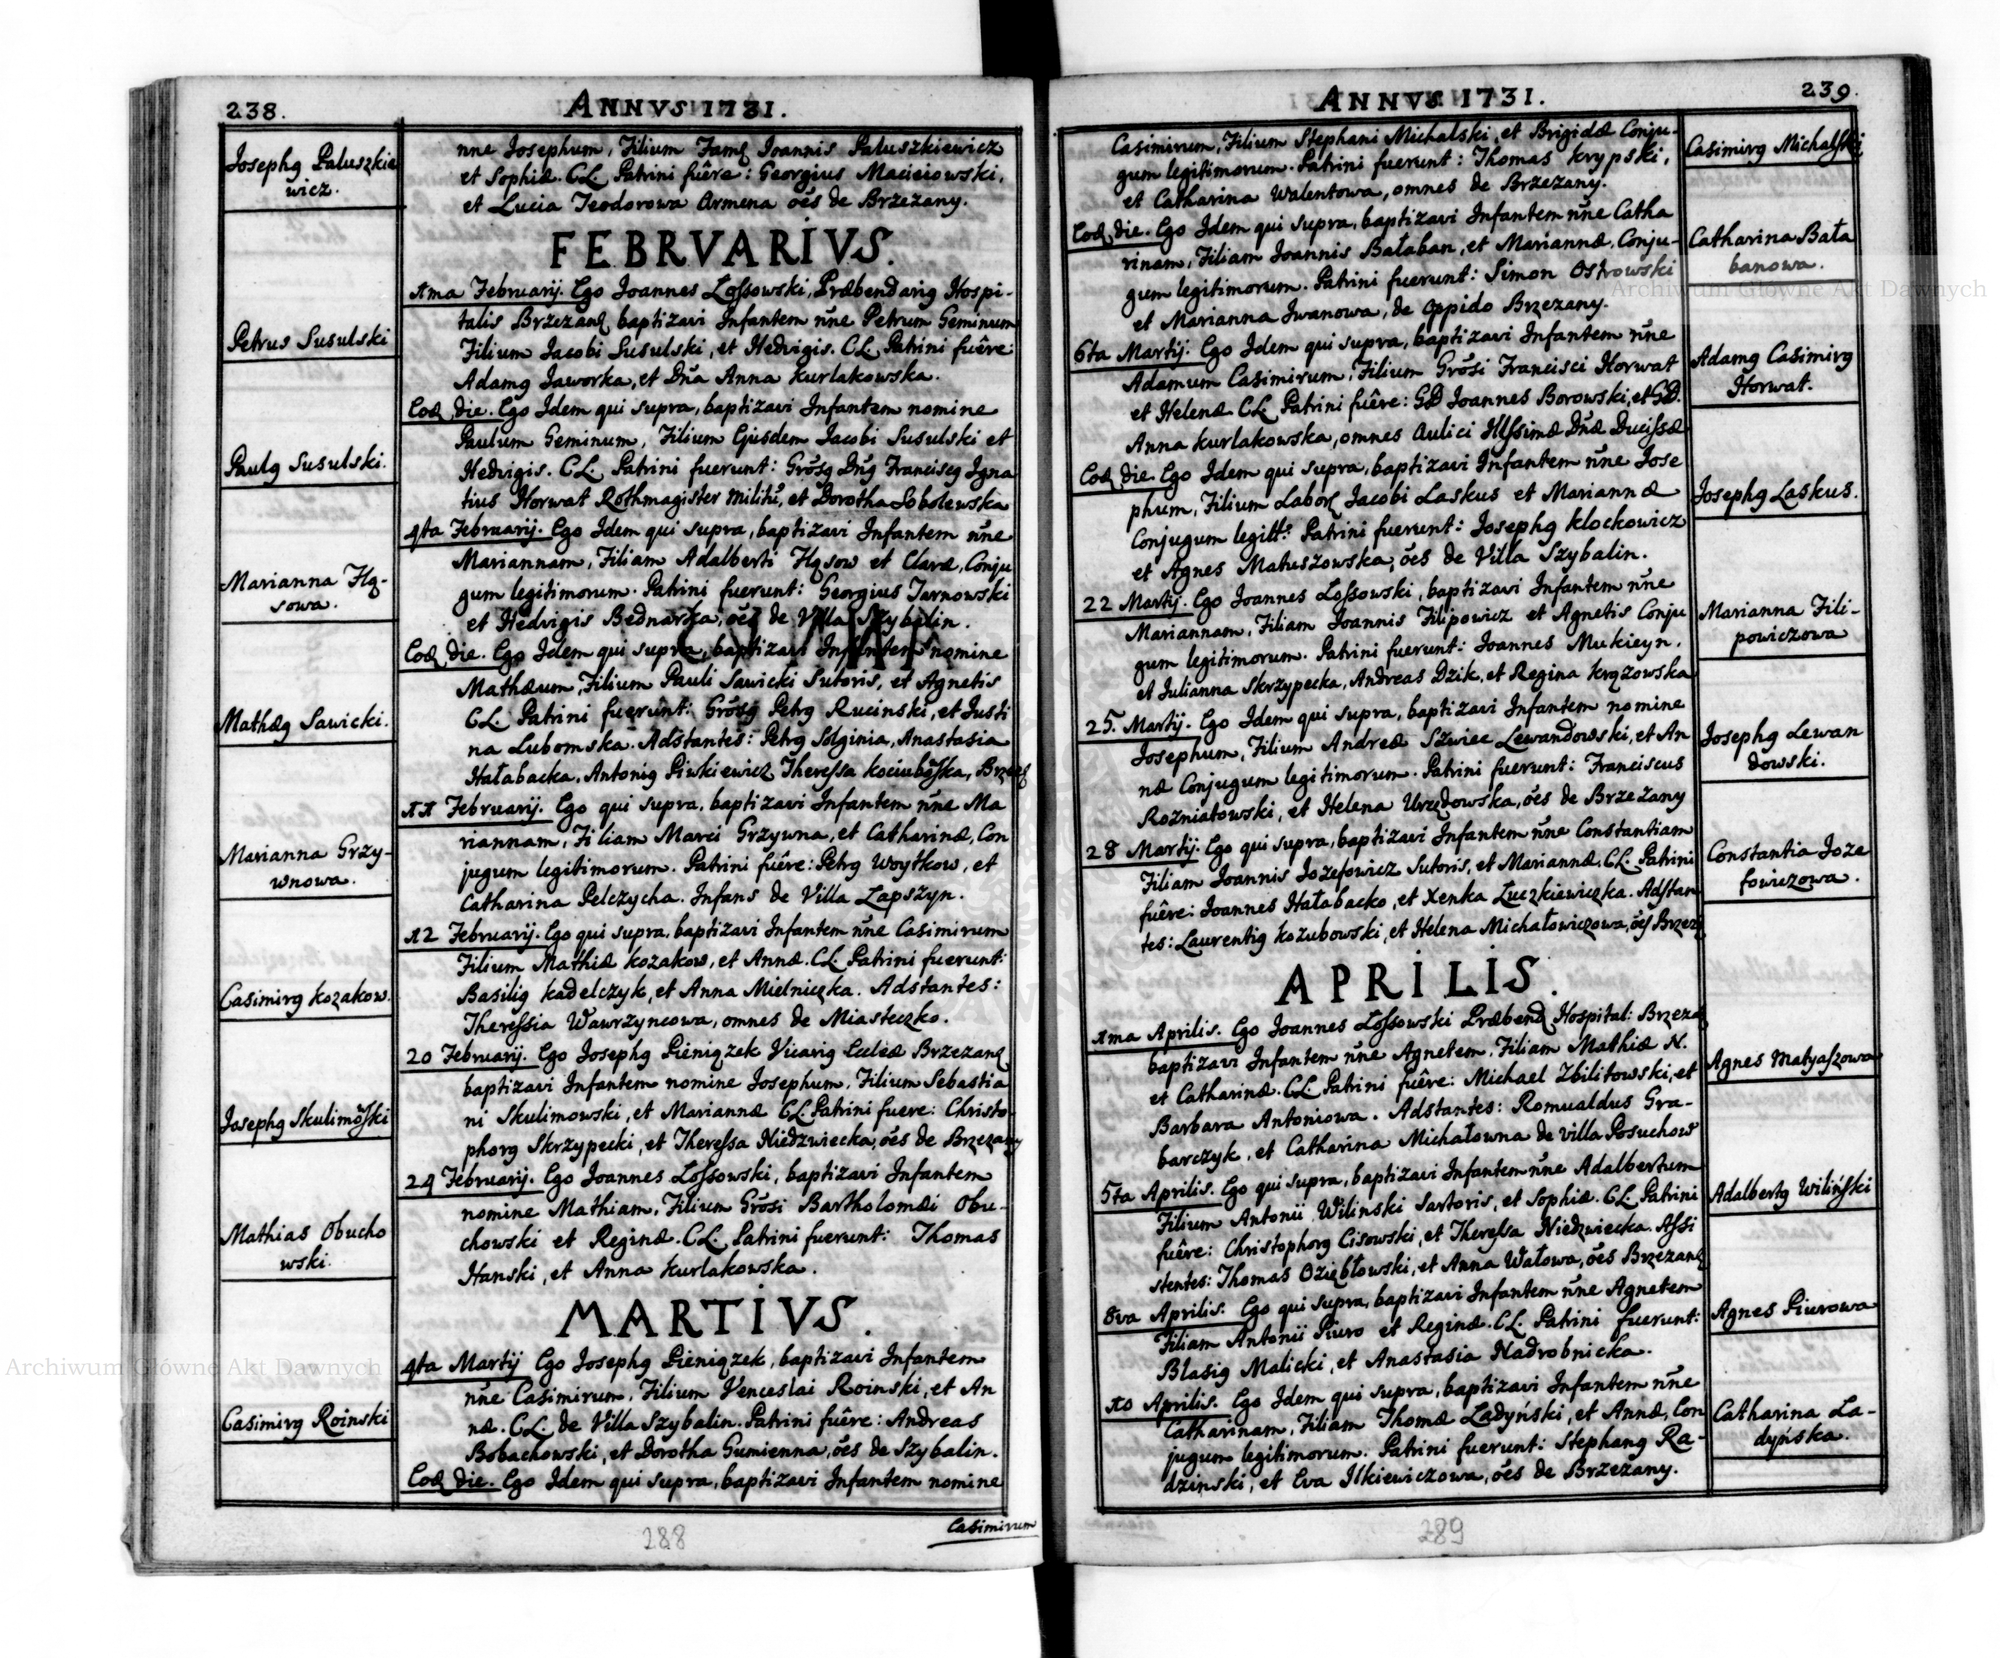 238.
ANNVS 1731.
Josephg Paluszkie
wicz.
nne Josephum, Filium Famę Joannis Paluszkiewicz
et Sophiæ. CL. Patrini fuêre: Georgius Macieiowski,
et Lucia Teodorowa Armena oẽs de Brzezany.
FEBRVARIVS.
1ma Februarij. Ego Joannes Lossowski, Præbendarig Hospi-
talis Brzezanę baptizavi Infantem nn̄e Petrum Geminum
Petrus Susulski
Filium Jacobi Susulski, et Hedvigis. CL. Patrini fuêre:
Adamg Jaworka, et Dn̄a Anna Kurlakowska.
Eoḍ die. Ego Idem qui supra, baptizavi Infantem nomine
Paulum Geminum, Filium Ejusdem Jacobi Susulski et
Paulg Susulski.
Hedvigis. CL. Patrini fuerunt: Grōsg Dn̄g Franciscg Igna
tius Horwat Rothmagister militū, et Dorotha Sobolewska
4ta Februarij. Ego Idem qui supra, baptizavi Infantem nn̄e
Marianna Hą-
sowa.
Mariannam, Filiam Adalberti Hąsow et Claræ, Conju
gum legitimorum. Patrini fuerunt: Georgius Tarnowski
et Hedvigis Bednarka, oẽs de Villa Szybalin.
Eoḍ die. Ego Idem qui supra, baptizavi Infantem nomine
Mathæum, Filium Pauli Sawicki Sutoris, et Agnetis
Mathæg Sawicki.
CL. Patrini fuerunt: Grōsg Petrg Rucinski, et Justi
na Lubomska. Adstantes: Petrg Solginia, Anastasia
Hałabacka, Antonig Piwkiewicz Theressa Kociubēska, Brzezę
11 Februarij. Ego qui supra, baptizavi Infantem nn̄e Ma
riannam, Filiam Marci Grzywna, et Catharinæ, Con
Marianna Grzy-
wnowa.
jugum legitimorum. Patrini fuêre: Petrg Woytkow, et
Catharina Pelczycha. Infans de Villa Lapszyn.
12 Februarij. Ego qui supra, baptizavi Infantem nn̄e Casimirum
Filium Mathiæ Kozakow, et Annæ. CL. Patrini fuerunt:
Casimirg Kozakow.
Basilig Kadelczyk, et Anna Mielniczka. Adstantes:
Theressia Wawrzyncowa, omnes de Miasteczko.
20 Februarij. Ego Josephg Pieniązek Vicarig Ecclēæ Brzezanę
baptizavi Infantem nomine Josephum, Filium Sebastia
Josephg Skulimōski
ni Skulimowski, et Mariannæ CL. Patrini fuere: Christo-
phorg Skrzypecki, et Theressa Niedzwiecka, oẽs de Brzezany
24 Februarij. Ego Joannes Lossowski, baptizavi Infantem
nomine Mathiam, Filium Grōsi Bartholomæi Obu-
Mathias Obucho
wski.
chowski et Reginæ. CL. Patrini fuerunt: Thomas
Hanski, et Anna Kurlakowska.
MARTIVS.
4ta Martij Ego Josephg Pieniązek, baptizavi Infantem
nn̄e Casimirum, Filium Venceslai Roinski, et An
Casimirg Roinski
næ. CL. de Villa Szybalin. Patrini fuêre: Andreas
Bobachowski, et Dorotha Gumienna, oẽs de Szybalin.
Eoḍ die. Ego Idem qui supra, baptizavi Infantem nomine
Casimirum
288
ANNVS 1731.
239.
Casimirum, Filium Stephani Michalski, et Brigidæ Conju-
Casimirg Michalski
gum legitimorum. Patrini fuerunt: Thomas Krypski,
et Catharina Walentowa, omnes de Brzezany.
Eoḍ die. Ego Idem qui supra, baptizavi Infantem nn̄e Catha
Catharina Bała
banowa.
rinam, Filiam Joannis Bałaban, et Mariannæ, Conju-
gum legitimorum. Patrini fuerunt: Simon Ostrowski
et Marianna Iwanowa, de oppido Brzezany.
6ta Martij. Ego Idem qui supra, baptizavi Infantem nn̄e
Adamg Casimirg
Horwat.
Adamum Casimirum, Filium Grōsi Francisci Horwat
et Helenæ CL. Patrini fuêre: GD Joannes Borowski, et GD.
Anna Kurlakowska, omnes Aulici Illssimæ Dn̄æ Ducissæ
Eoḍ die. Ego Idem qui supra, baptizavi Infantem nn̄e Jose
Josephg Laskus.
phum, Filium Laborę Jacobi Laskus et Mariannæ
Conjugum legitt: Patrini fuerunt: Josephg Klockowicz
et Agnes Matuszowska, oẽs de Villa Szybalin.
22 Martij. Ego Joannes Lossowski, baptizavi Infantem nn̄e
Marianna Fili-
powiczowa
Mariannam, Filiam Joannis Filipowicz et Agnetis Conju
gum legitimorum. Patrini fuerunt: Joannes Mukieyn,
et Julianna Skrzypecka, Andreas Dzik, et Regina Krązowska
25. Martij. Ego Idem qui supra, baptizavi Infantem nomine
Josephg Lewan
dowski.
Josephum, Filium Andreæ Szwiec Lewandowski, et An
næ Conjugum legitimorum. Patrini fuerunt: Franciscus
Rozniatowski, et Helena Urzędowska, oẽs de Brzezany
28 Martij. Ego qui supra, baptizavi Infantem nn̄e Constantiam
Constantia Joze
fowiczowa.
Filiam Joannis Jozefowicz Sutoris, et Mariannæ. CL. Patrini
fuêre: Joannes Hałabacko, et Xenka Luczkiewiczka. Adstan
tes: Laurentig Kozubowski, et Helena Michałowiczowa, oẽs Brzezę
APRILIS.
1ma Aprilis. Ego Joannes Lossowski Præbend Hospital: Brzezę
baptizavi Infantem nn̄e Agnetem, Filiam Mathiæ N.
Agnes Matyaszowa
et Catharinæ. CL. Patrini fuêre: Michael Zbilitowski, et
Barbara Antoniowa. Adstantes: Romualdus Gra-
barczyk, et Catharina Michałowna de villa Posuchow
5ta Aprilis. Ego qui supra, baptizavi Infantem nn̄e Adalbertum
Adalbertg Wiliński
Filium Antonii Wilinski Sartoris, et Sophiæ. CL. Patrini
fuêre: Christophorg Cisowski, et Theressa Niedzwiecka. Assi
stentes: Thomas Oziębłowski, et Anna Wałowa, oẽs Brzezanę
8va Aprilis. Ego qui supra, baptizavi Infantem nn̄e Agnetem
Agnes Piurowa
Filiam Antonii Piuro et Reginæ. CL. Patrini fuerunt:
Blasig Malicki, et Anastasia Nadrobnicka.
10 Aprilis. Ego Idem qui supra, baptizavi Infantem nn̄e
Catharina La-
dyńska.
Catharinam, Filiam Thomæ Ladyński, et Annæ, Con
jugum legitimorum. Patrini fuerunt: Stephang Ra-
dzinski, et Eva Ilkiewiczowa, oẽs de Brzezany.
289
Archiwum Główne Akt Dawnych
Archiwum Główne Akt Dawnych